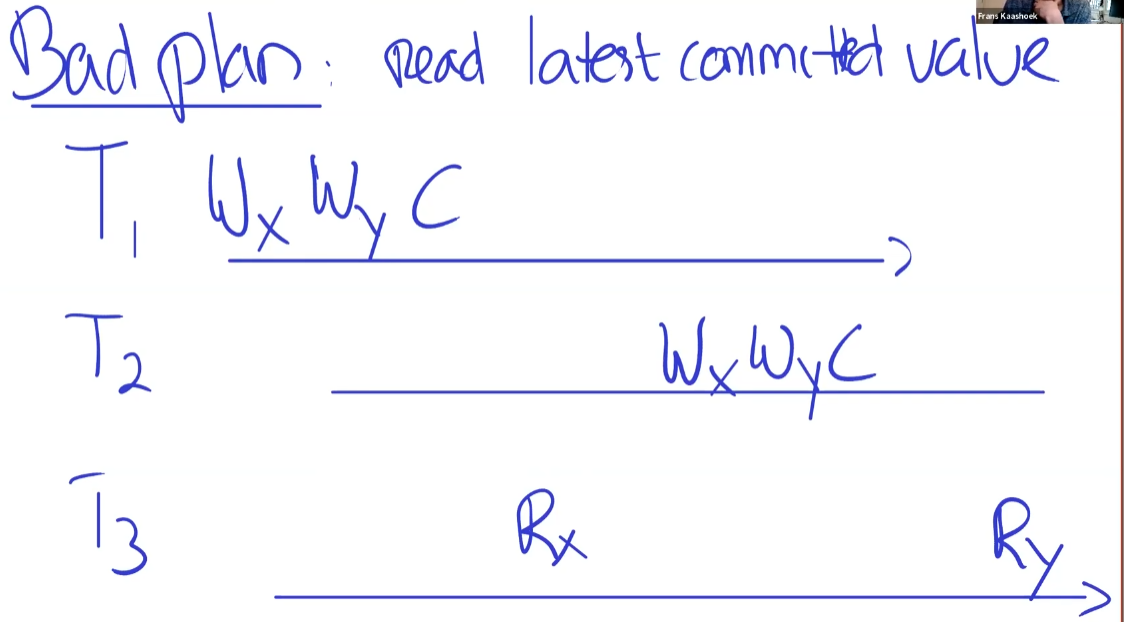 Frans Kaashoek
Bad plan: Read latest committed value
T1 Wx Wy C
T2 Wx Wy C
T3 Rx Ry